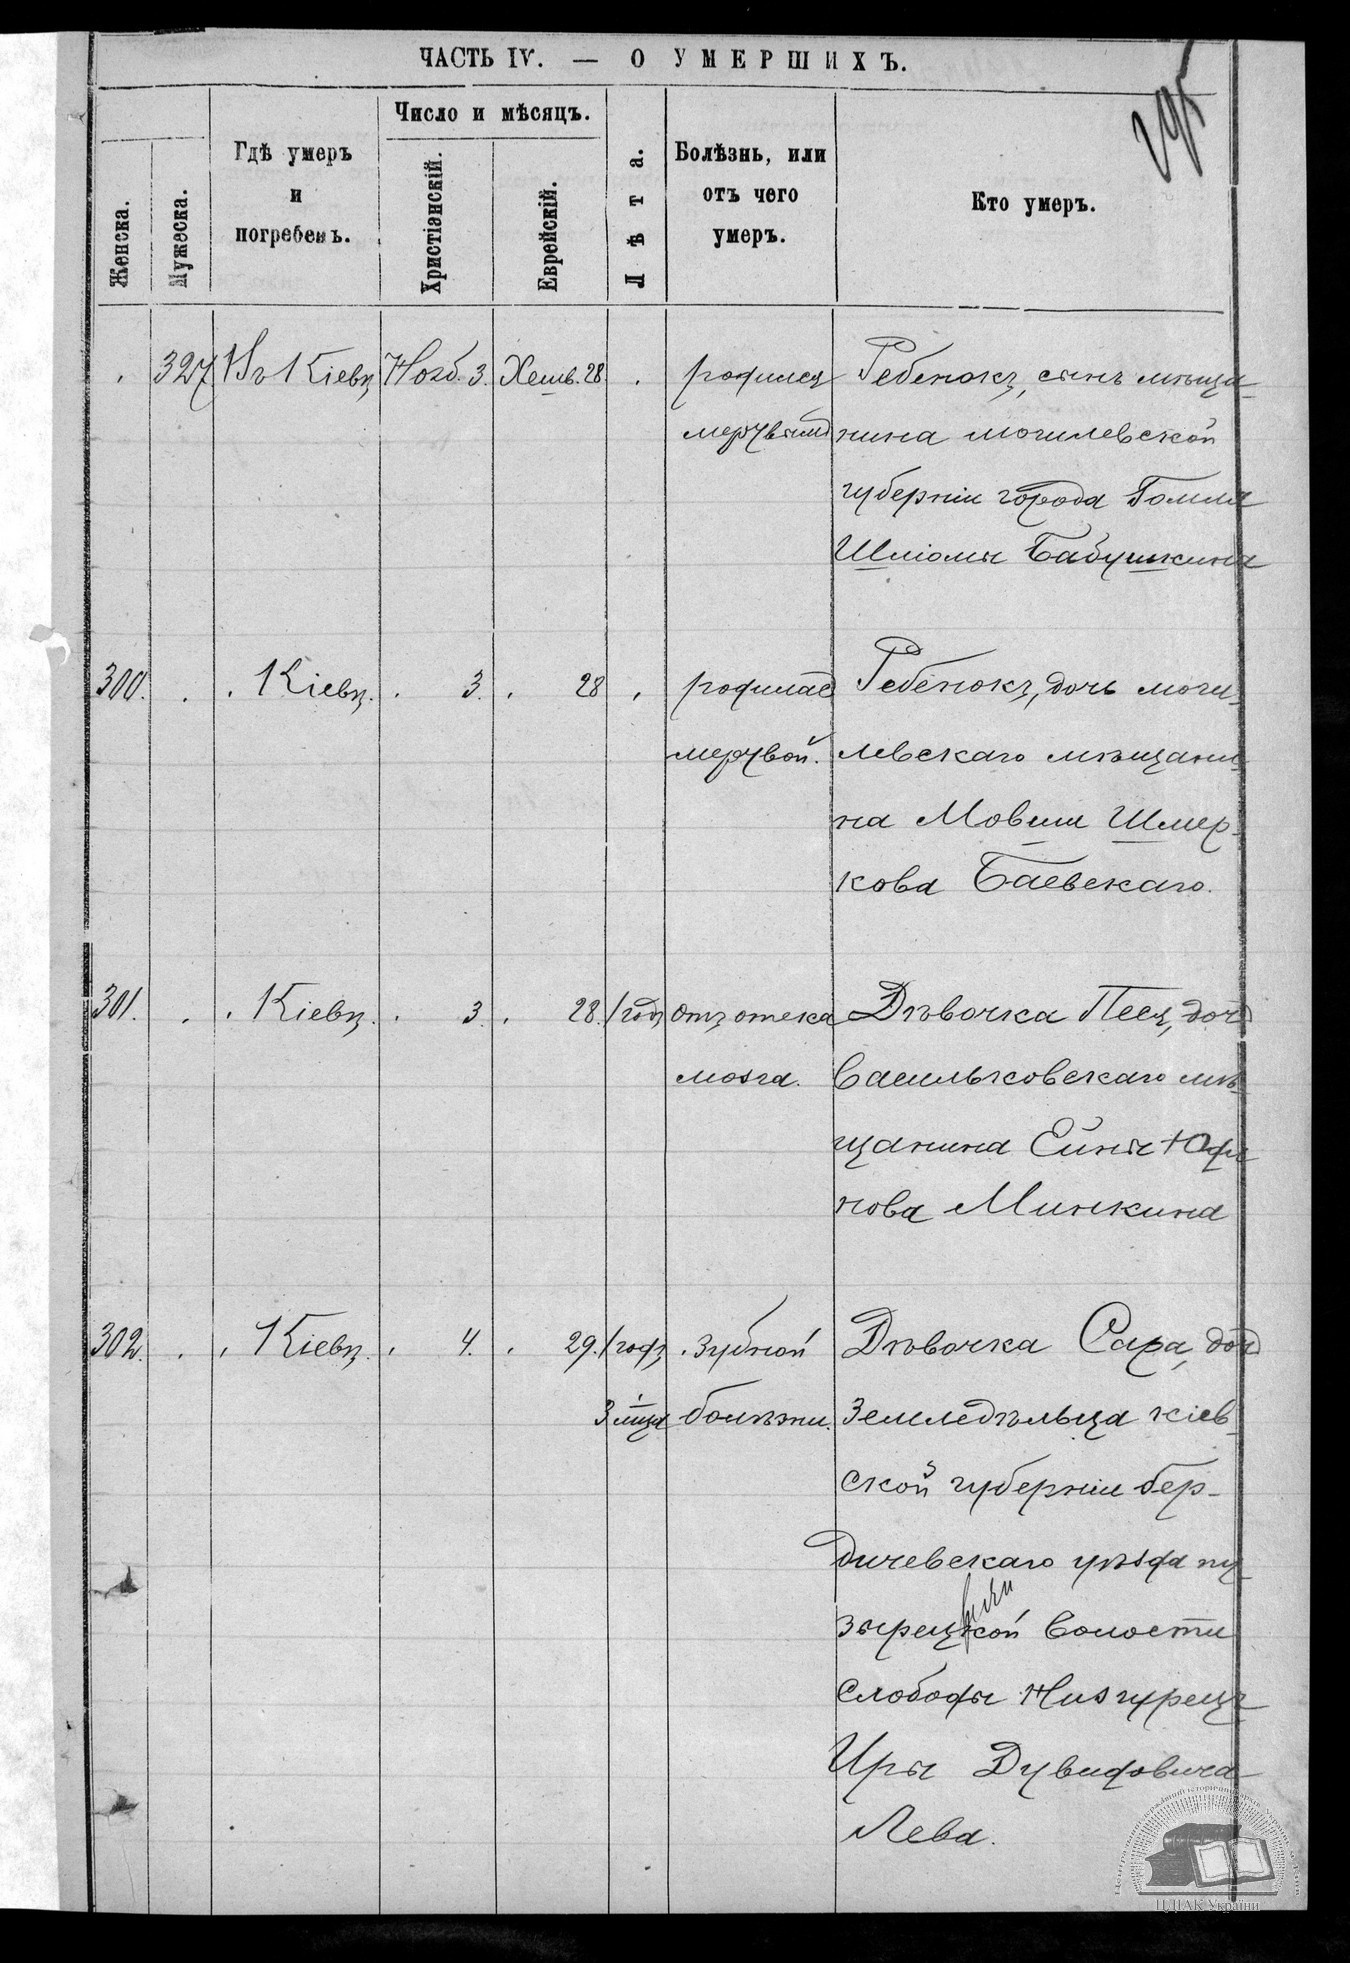 ЧАСТЬ IV. — О УМЕРШИХЪ.
295
Женска.
Мужеска.
Гдѣ умеръ
и
погребенъ.
Число и мѣсяцъ.
Христіанскій.
Еврейскій.
Лѣта.
Болѣзнь, или
отъ чего
умеръ.
Кто умеръ.
327 Въ Кіевѣ Нояб. 3. Хешв. 28. родился Ребенокъ, сынъ мѣща-
мертвымъ нина могилевской
губерніи города Гомля
Шліомы Бабушкина
300. Кіевѣ. 3. 28 родилась Ребенокъ, дочь моги-
мертвой. левскаго мѣщани-
на Мовши Шмер-
кова Баевскаго.
301. Кіевѣ. 3. 28. 1 годъ отъ отека Дѣвочка Песя, дочь
мозга. Васильковскаго мѣ-
щанина Ейны
нова Минкина
302. Кіевѣ. 4. 29. 1 годъ зубной Дѣвочка Сара, дочь
3 мѣсца болѣзни. Земледѣльца кіев-
ской губерніи бер-
дичевскаго уѣзда пу-
зырецкой волости
слободы Низгурецъ
Иры Дувидовича
Лева.
ЦДІАК України